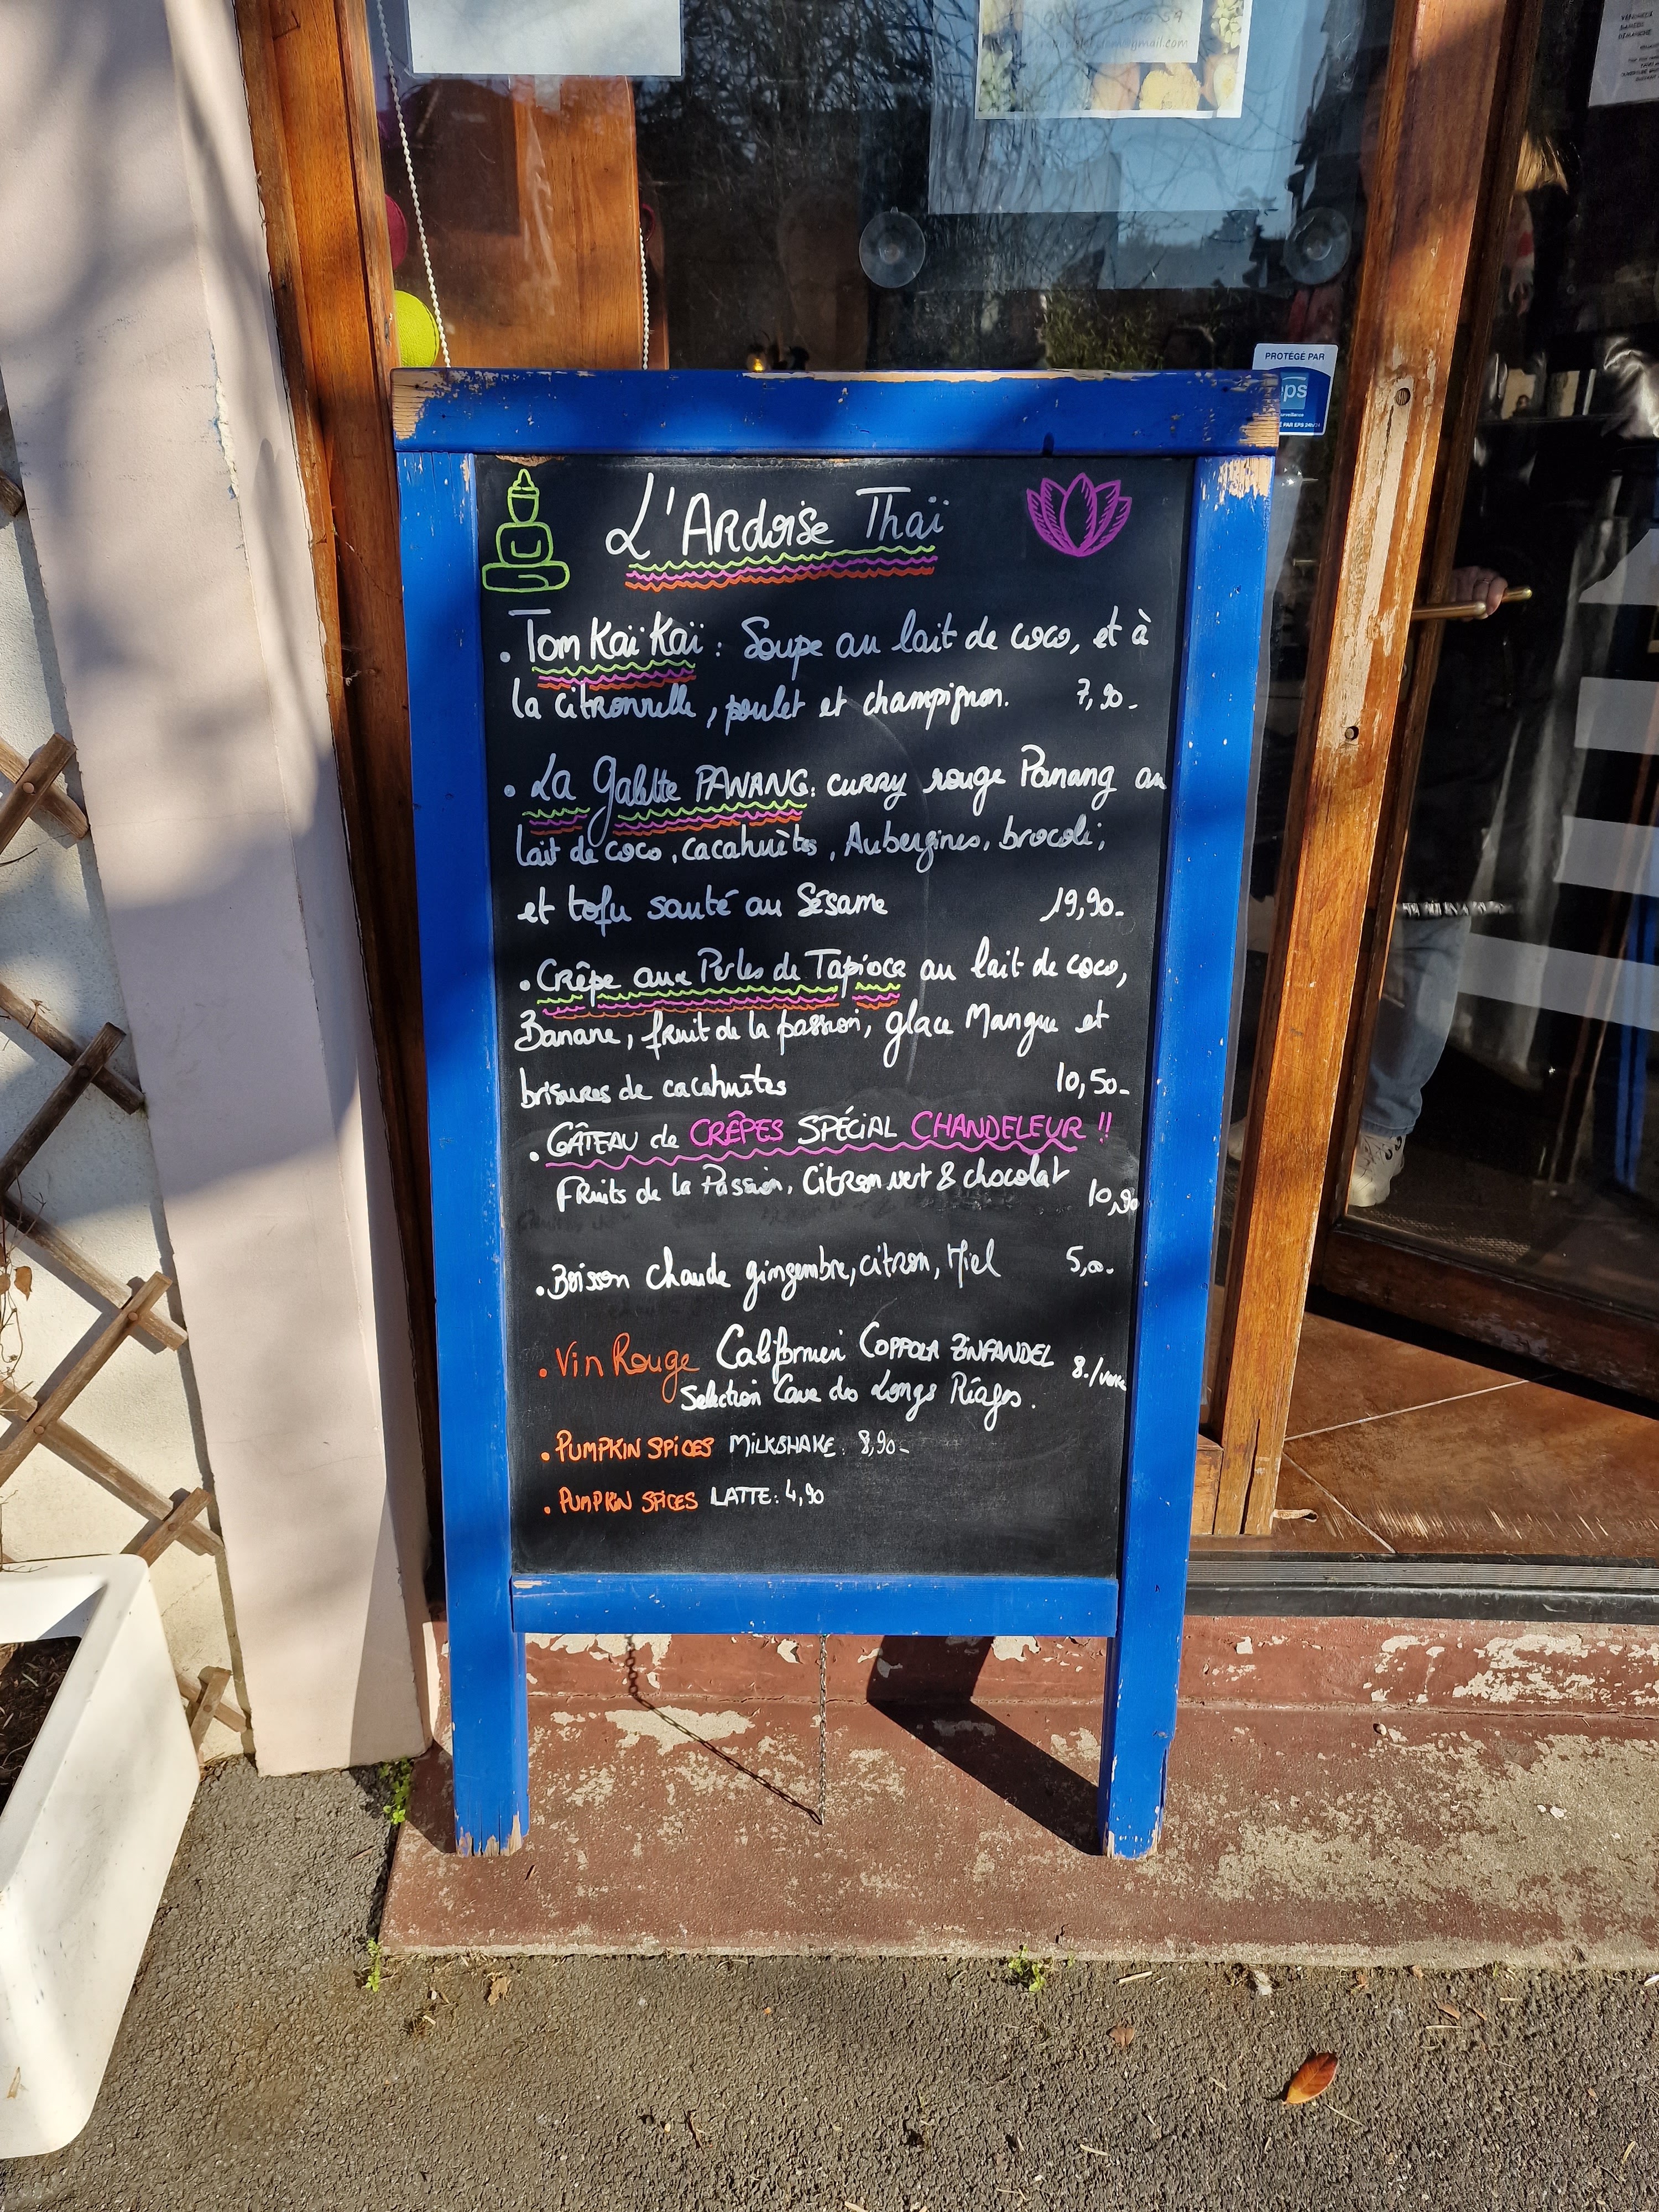 @gmail.com
PROTÉGÉ PAR
eps
L'Ardoise Thaï
. Tom Kaï Kaï : Soupe au lait de coco, et à
la citronnelle, poulet et champignon. 7,90-
. La galette PANANG: curry rouge Panang au
lait de coco, cacahuètes, Aubergines, brocoli,
et tofu sauté au Sésame 19,90-
. Crêpe aux Perles de Tapioca au lait de coco,
Banane, fruit de la passion, glace Mangue et
brisures de cacahuètes 10,50-
. GÂTEAU de CRÊPES SPÉCIAL CHANDELEUR !!
Fruits de la Passion, Citron vert & chocolat 10,90
. Boisson chaude gingembre, citron, Miel 5,00-
. Vin Rouge Californien COPPOLA ZINFANDEL 8./verre
Selection Cave des Longs Réages.
. PUMPKIN SPICES MILKSHAKE: 8,90-
. PUMPKIN SPICES LATTE: 4,90